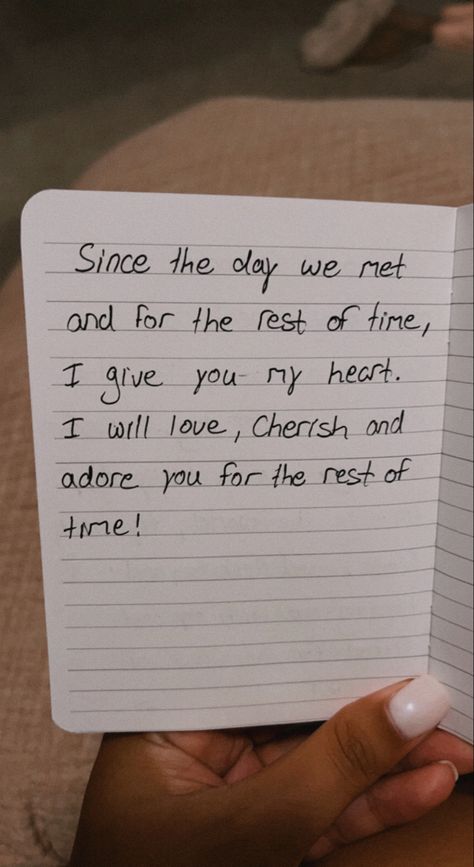 Since the day we met
and for the rest of time,
I give you my heart.
I will love, Cherish and
adore you for the rest of
time!